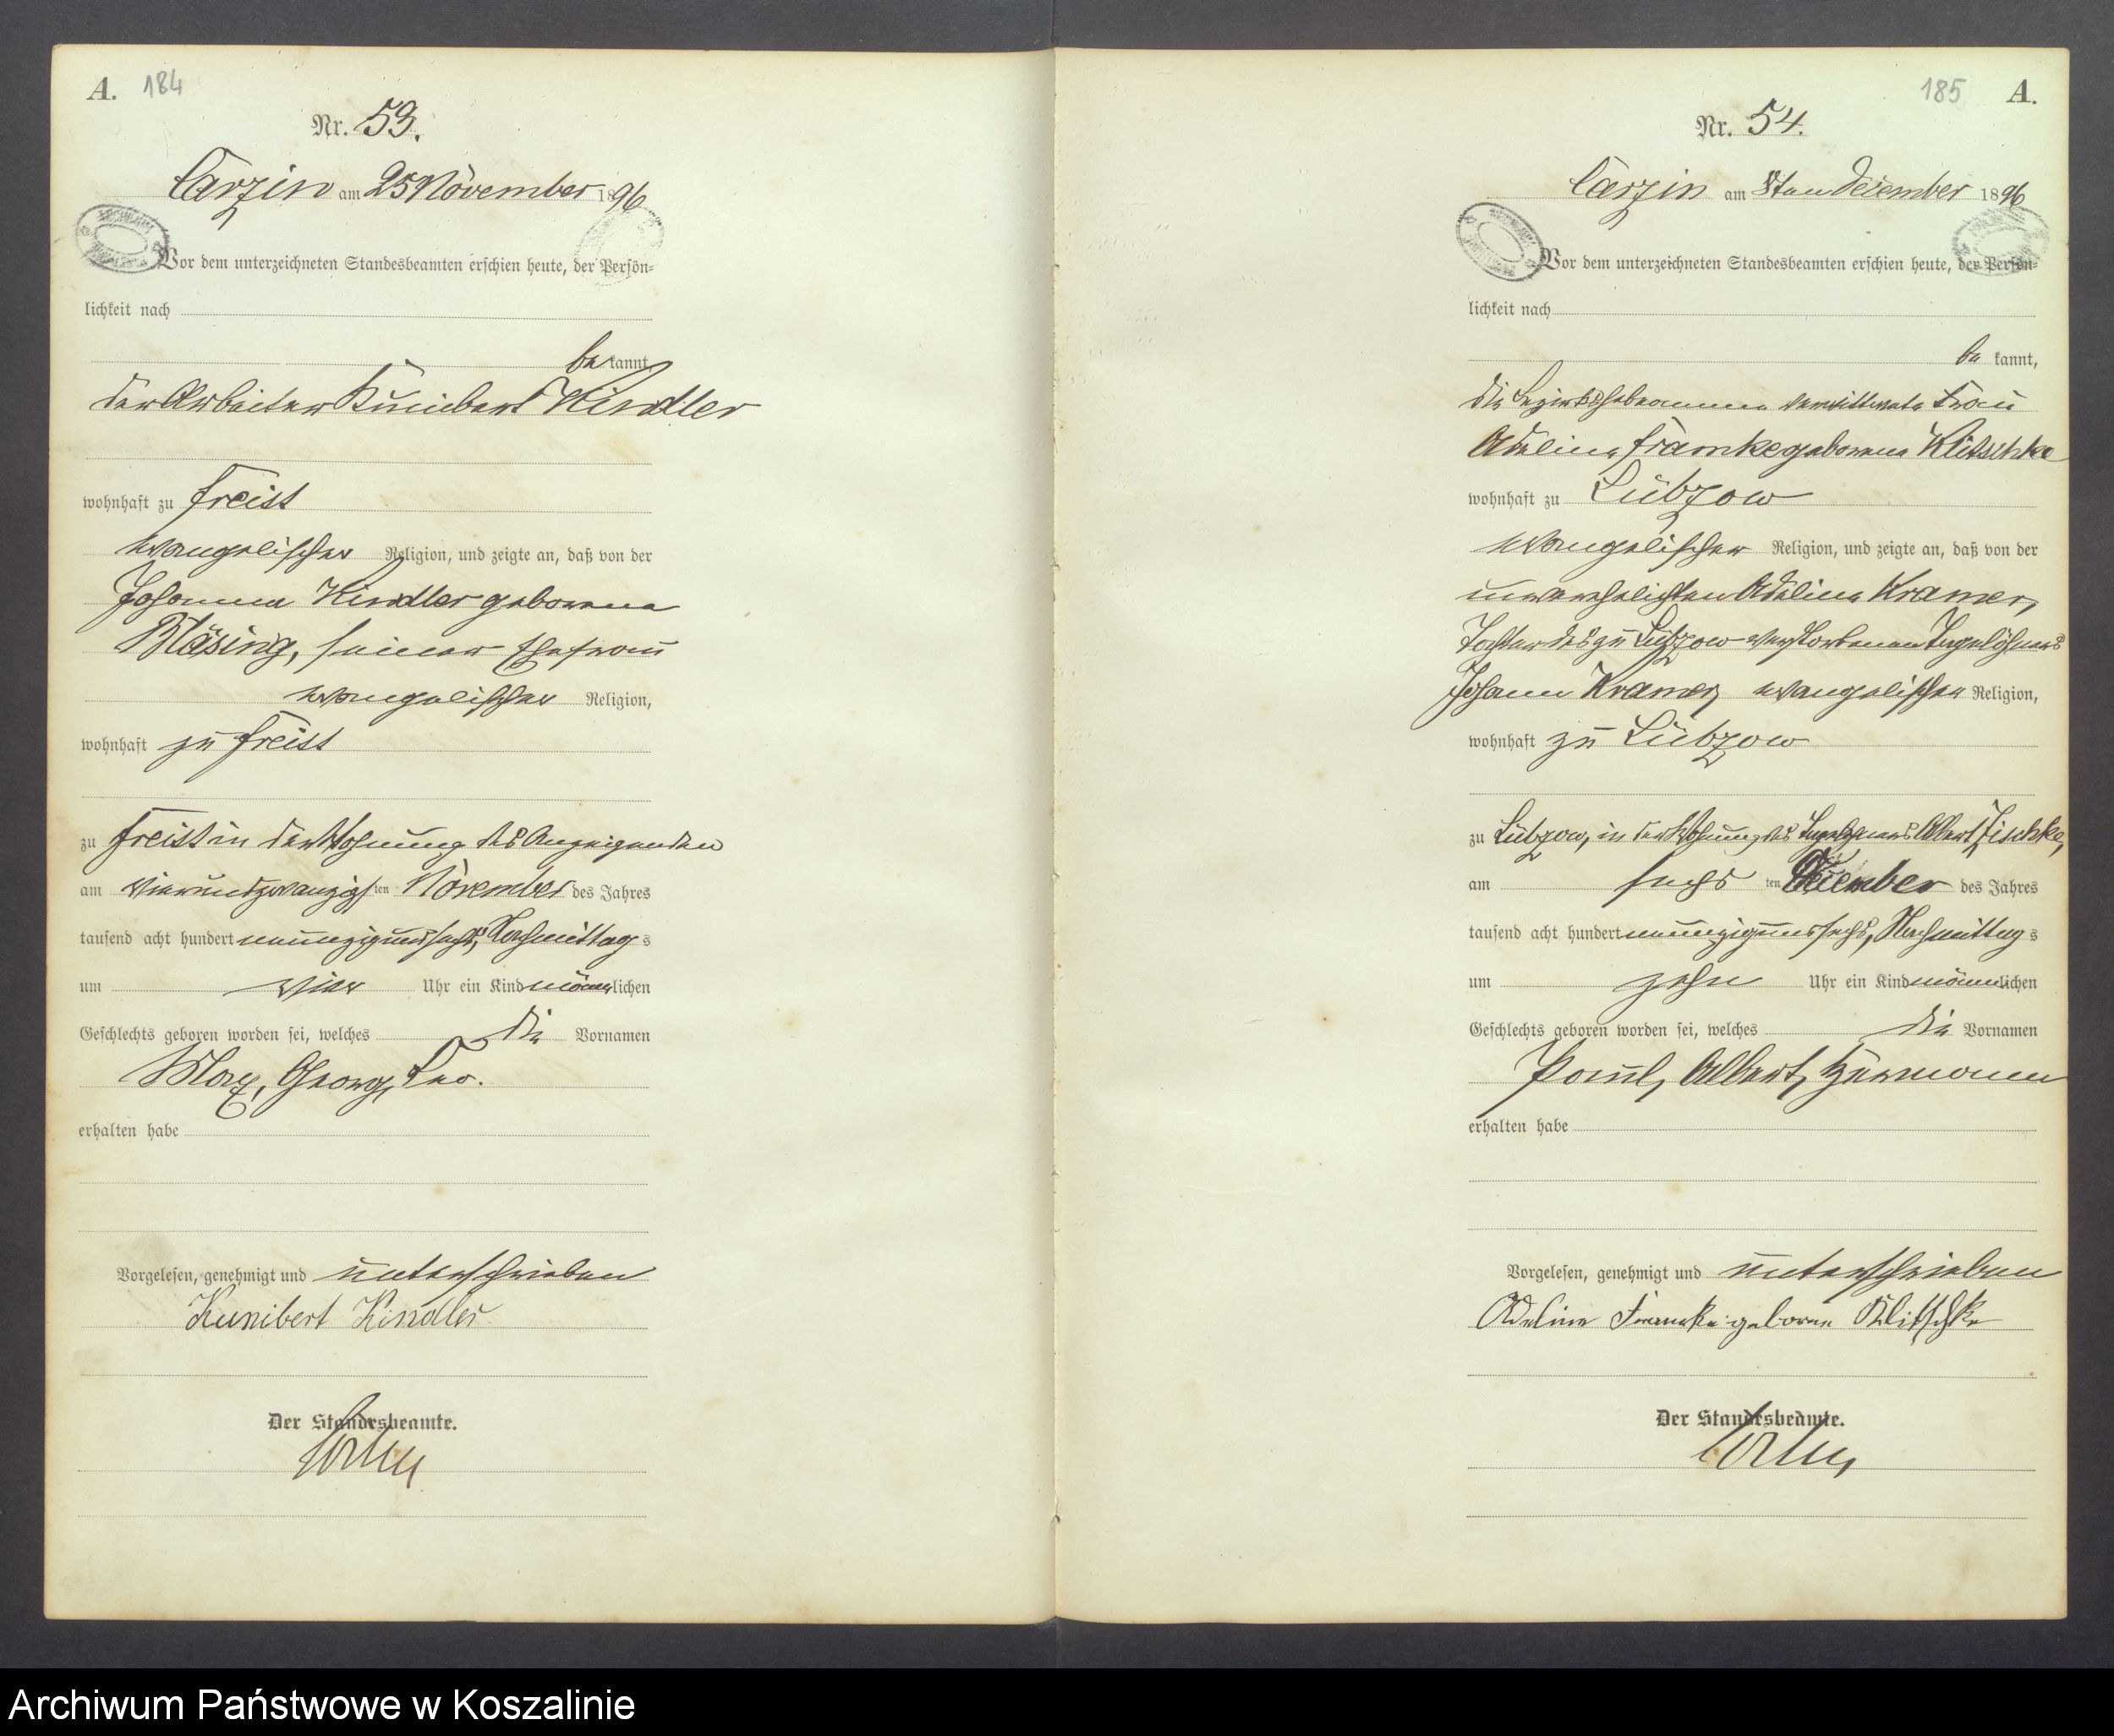 A. 184
Nr. 53.
Carzin am 25 November 1896
Vor dem unterzeichneten Standesbeamten erschien heute, der Persön-
lichkeit nach
be kannt,
der Arbeiter Kunibert Kindler
wohnhaft zu Freist
evangelischer Religion, und zeigte an, daß von der
Johanna Kindler geborene
Bläsing, seiner Ehefrau
evangelischer Religion,
wohnhaft zu Freist
zu Freist in der Wohnung des Anzeigenden
am vierundzwanzigsten November des Jahres
tausend acht hundert neunzigundsechs, Nachmittags
um vier Uhr ein Kind männlichen
Geschlechts geboren worden sei, welches die Vornamen
Max, Georg, Leo.
erhalten habe
Vorgelesen, genehmigt und unterschrieben
Kunibert Kindler
Der Standesbeamte.
185 A.
Nr. 54.
Carzin am 8ten December 1896
Vor dem unterzeichneten Standesbeamten erschien heute, der Persön-
lichkeit nach
be kannt,
die Bezirkshebamme verwittwete Frau
Adeline Framke geborene Klitschke
wohnhaft zu Lübzow
evangelischer Religion, und zeigte an, daß von der
unverehelichten Adeline Kramer,
Tochter des zu Lübzow verstorbenen Tagelöhners
Johann Kramer, evangelischer Religion,
wohnhaft zu Lübzow
zu Lübzow, in der Wohnung des Tagelöhners Albert Zischke,
am sechsten December des Jahres
tausend acht hundert neunzigundsechs, Nachmittags
um zehn Uhr ein Kind männlichen
Geschlechts geboren worden sei, welches die Vornamen
Paul, Albert, Hermann
erhalten habe
Vorgelesen, genehmigt und unterschrieben
Adeline Framke geborne Klitschke
Der Standesbeamte.
Archiwum Państwowe w Koszalinie